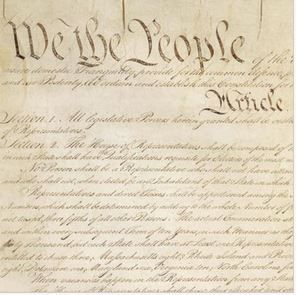 We the People of the
insure domestic Tranquility, provide for the common defence,
and our Posterity, do ordain and establish this Constitution for
Article
Section 1. All legislative Powers herein granted shall be vested
of Representatives.
Section 2. The House of Representatives shall be composed of
in each State shall have Qualifications requisite for Electors of the most
No Person shall be a Representative who shall not have attained
and who shall not, when elected, be an Inhabitant of that State in which
Representatives and direct Taxes shall be apportioned among the
Numbers, which shall be determined by adding to the whole Number
not taxed, three fifths of all other Persons. The actual Enumeration
and within every subsequent Term of ten Years, in such Manner as they
thirty Thousand, but each State shall have at Least one Representative
entitled to chuse three, Massachusetts eight, Rhode Island and
eight, Delaware one, Maryland six, Virginia ten, North Carolina
When vacancies happen in the Representation from any State
The House of Representatives shall chuse their